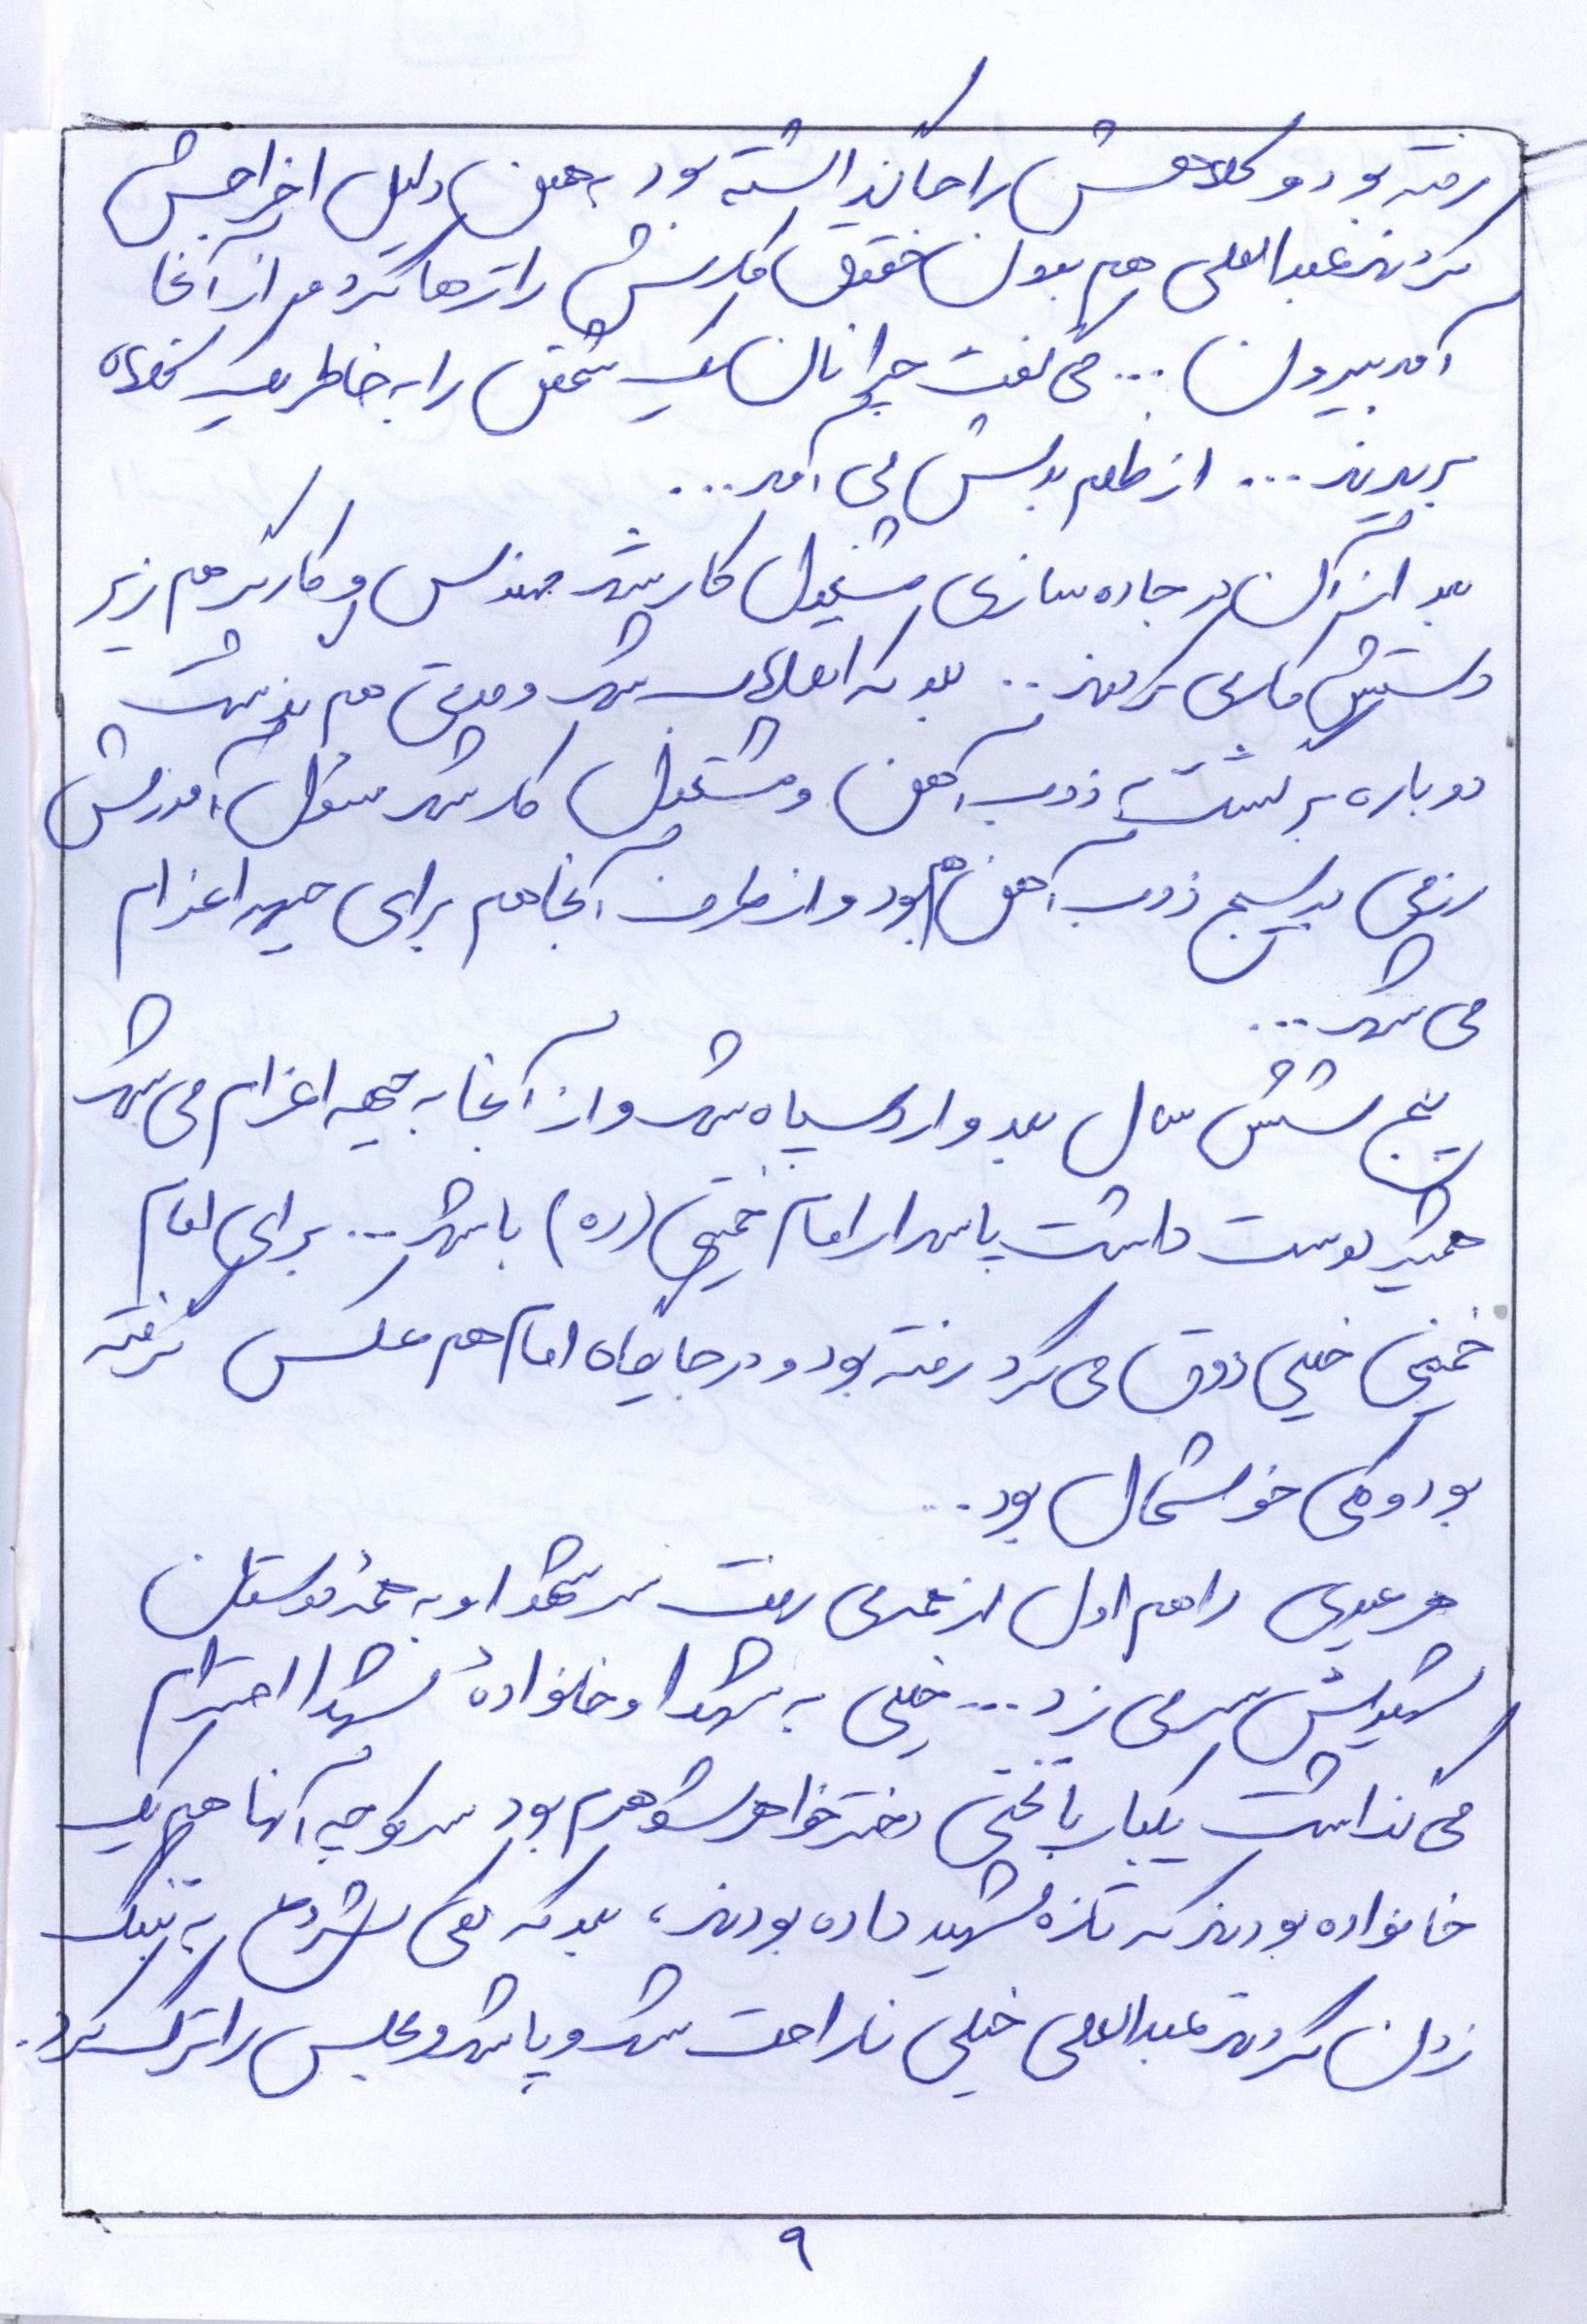 رفته بود و کلاهش را جا گذاشته بود به همین دلیل اخراجش
کردند عبدالعلی هم بدون حقوق کارش را رها کرد و از آنجا
آمد بیرون ... می گفت چرا نان یک شخص را به خاطر یک کلاه
بریدید ... از ظلم بدش می آمد ...
بعد از آن در جاده سازی مشغول کار شد مهندس و کارگر هم زیر
دستش کار می کردند .. بعد که انقلاب شد و مدتی هم گذشت
دوباره برگشت ذوب آهن و مشغول کار شد مسئول آموزش
رزمی بسیج ذوب آهن هم بود و از طرف آنجا هم برای جبهه اعزام
می شد ...
پنج شش سال بعد وارد سپاه شد و از آنجا به جبهه اعزام می شد
همیشه دوست داشت پاسدار امام خمینی (ره) باشد ... برای امام
خمینی خیلی ذوق می کرد رفته بود و در جایگاه امام هم عکس گرفته
بود و کلی خوشحال بود ..
هر عیدی را هم اول از همه می رفت سر شهدا و به همهٔ دوستان
شهیدش سر می زد ... خیلی به شهدا و خانوادهٔ شهدا احترام
می گذاشت یکبار پاتختی دختر خواهر شوهرم بود سر کوچه آنها هم یک
خانواده بودند که تازه شهید داده بودند، بعد که شروع به تنبک
زدن کردند عبدالعلی خیلی ناراحت شد و پا شد و مجلس را ترک کرد.
۹